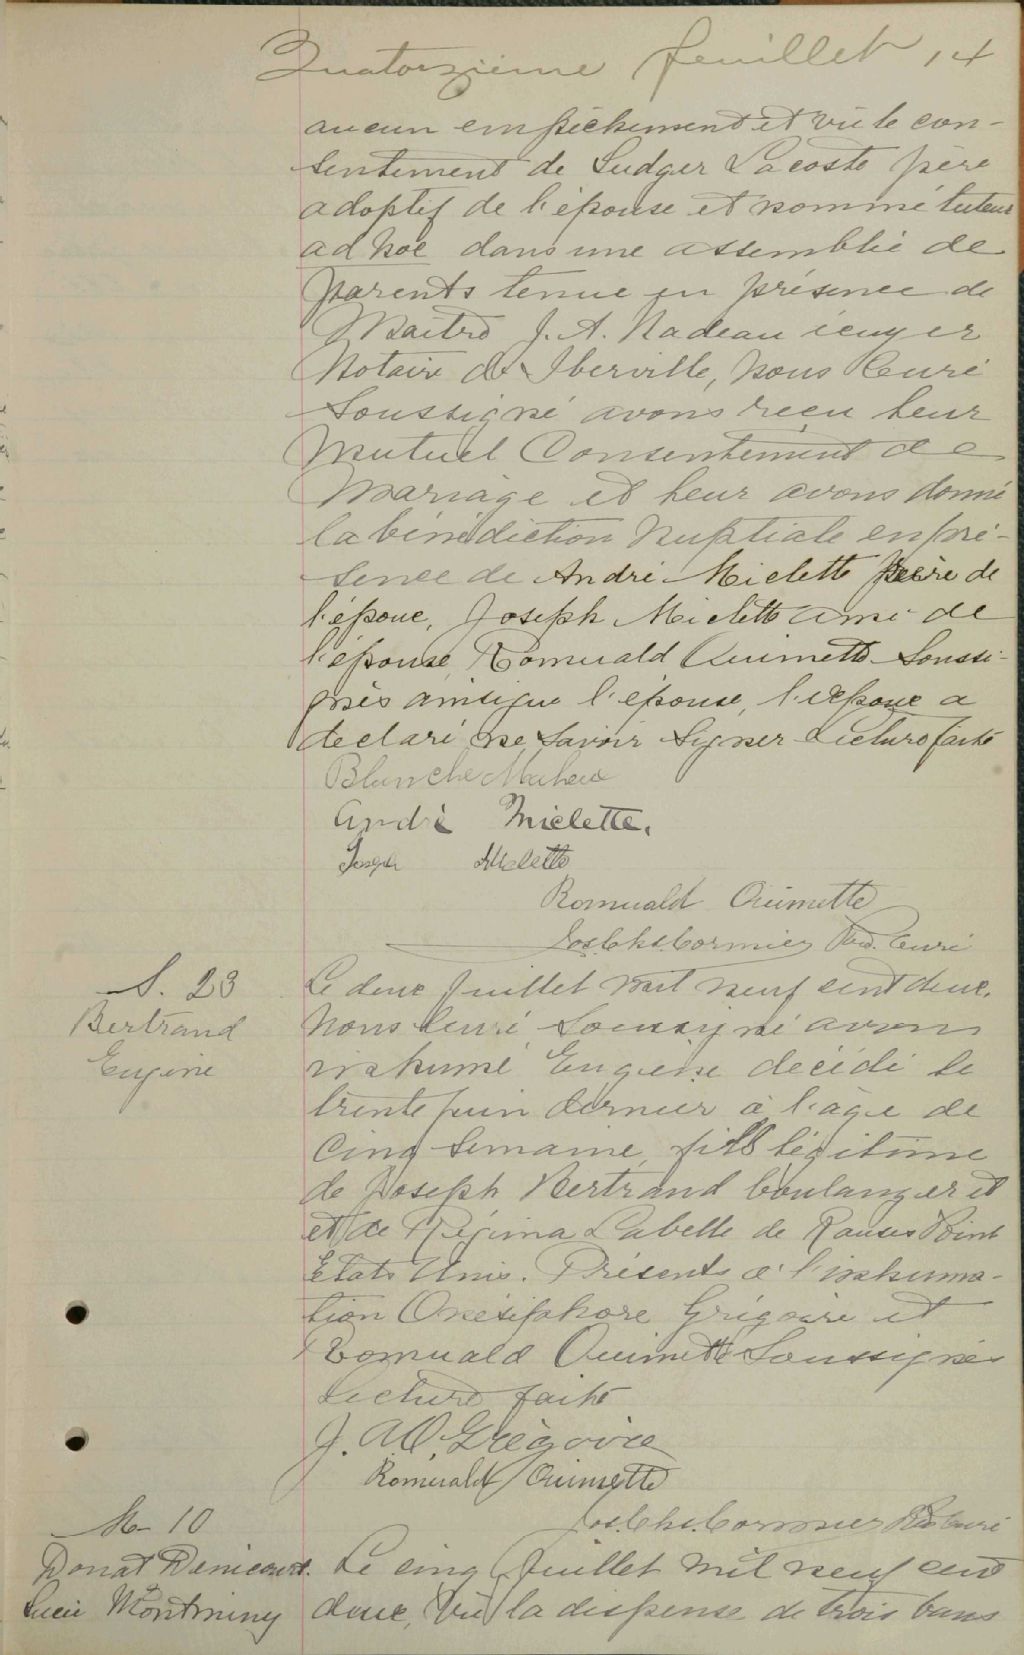 Quatorzième feuillet 14
aucun empêchement et vu le con-
sentement de Ludger Lacoste père
adoptif de l'épouse et nommé tuteur
ad hoc dans une assemblée de
parents tenue en présence de
Maître J. A. Nadeau écuyer
Notaire de Iberville, nous Curé
Soussigné avons reçu leur
Mutuel Consentement de
Mariage et leur avons donné
la bénédiction Nuptiale en pré-
sence de André Miclette père de
l'époux, Joseph Miclette ami de
l'épouse, Romuald Ouimette Soussi-
gnés ainsi que l'épouse, l'époux a
declaré ne savoir signer Lecture faite
Blanche Maheu
André Miclette.
Joseph Miclette
Romuald Ouimette
Jos. Chs. Cormier Ptre. Curé
S. 23
Bertrand
Eugène
Le deux Juillet mil neuf cent deux,
Nous Curé Soussigné avons
inhumé Eugène décédé le
trente juin dernier à l'âge de
Cinq semaine, fils légitime
de Joseph Bertrand boulanger et
et de Régina Labelle de Rouses Point
Etats Unis. Présents à l'inhuma-
tion Onésiphore Grégoire et
Romuald Ouimette Soussignés
Lecture faite
J. A. O. Grègoire
Romuald Ouimette
Jos. Chs. Cormier Ptre Curé
M- 10
Donat Denicourt.
Lucie Montminy
Le cinq Juillet mil neuf cent
deux, Vu la dispense de trois bans